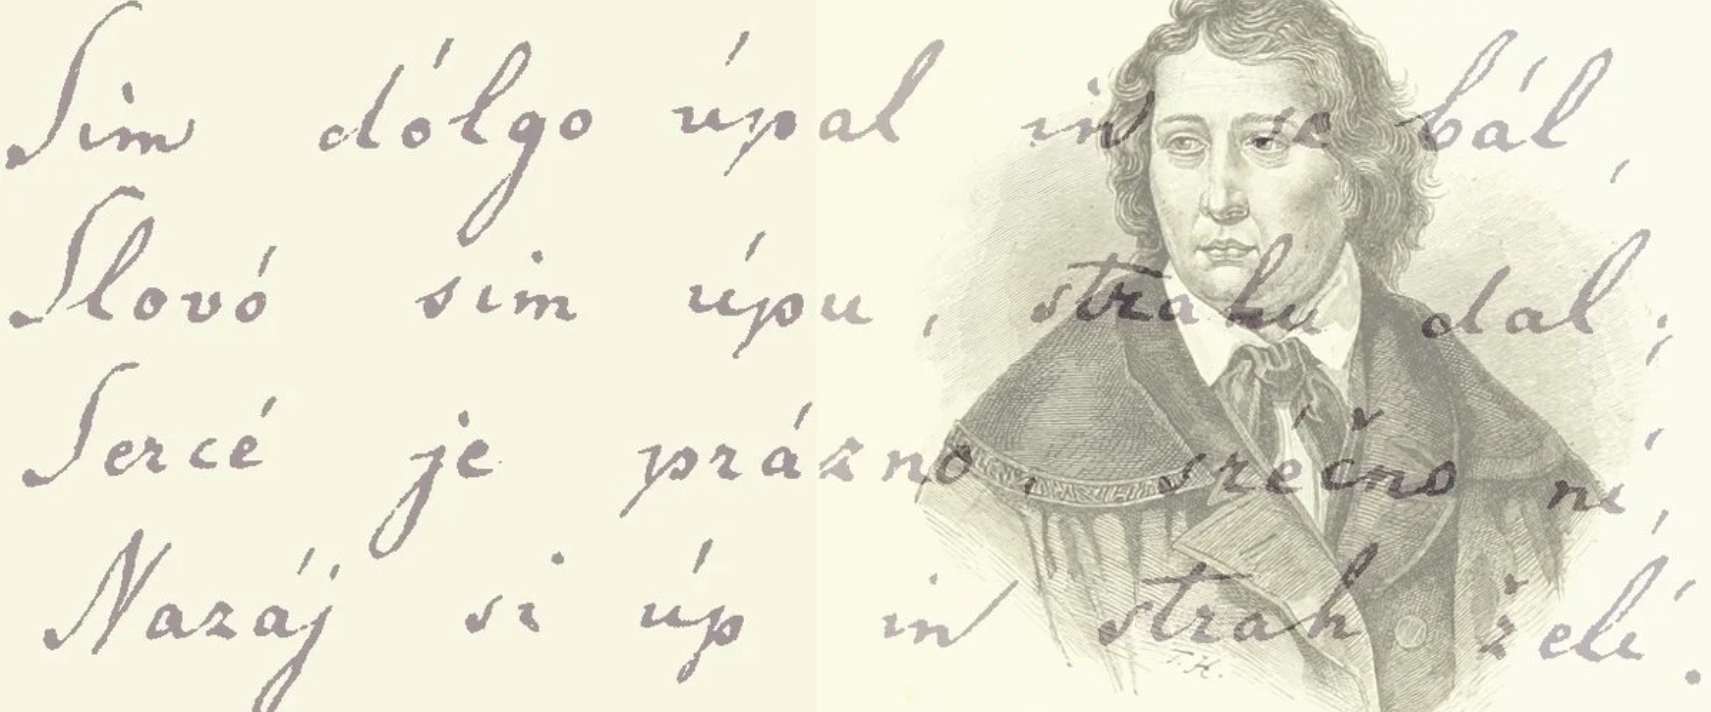 Sim dólgo úpal in se bál,
Slovó sim úpu, strahu dal;
Sercé je prázno, sréčno ni,
Nazáj si úp in strah želí.
T.H.